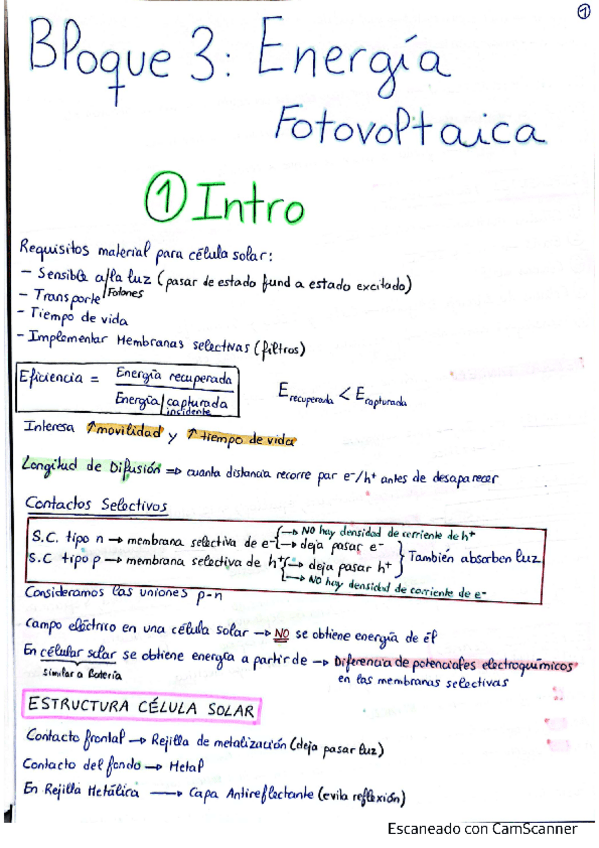 ①
Bloque 3: Energía
Fotovoltaica
① Intro
Requisitos material para célula solar:
- Sensible a/la luz (pasar de estado fund a estado excitado)
Fotones
- Transporte
- Tiempo de vida
- Implementar Membranas selectivas (filtros)
Eficiencia = Energía recuperada
Energía capturada
incidente
E recuperada < E capturada
Interesa ↑movilidad y ↑tiempo de vida
Longitud de Difusión => cuanta distancia recorre par e-/h+ antes de desaparecer
Contactos Selectivos
S.C. tipo n → membrana selectiva de e- → NO hay densidad de corriente de h+
→ deja pasar e-
S.C tipo p → membrana selectiva de h+ → deja pasar h+
→ NO hay densidad de corriente de e-
También absorben luz
Consideramos las uniones p-n
Campo eléctrico en una célula solar → NO se obtiene energía de él
En célular solar se obtiene energía a partir de → Diferencia de potenciales electroquímicos
similar a batería
en las membranas selectivas
ESTRUCTURA CÉLULA SOLAR
Contacto frontal → Rejilla de metalización (deja pasar luz)
Contacto del fondo → Metal
En Rejilla Metálica → Capa Antireflectante (evita reflexión)
Escaneado con CamScanner